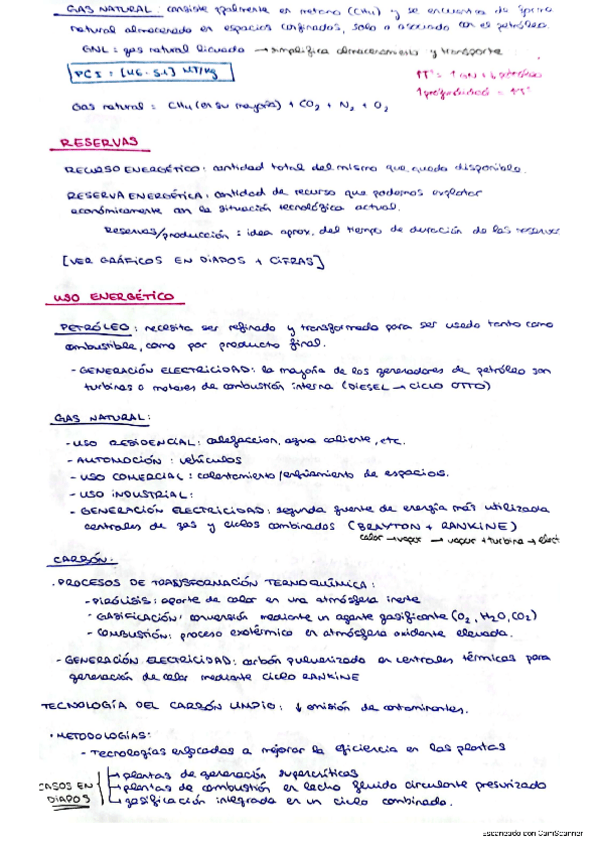 GAS NATURAL: consiste ppalmente en metano (CH4) y se encuentra de forma
natural almacenado en espacios confinados, solo o asociado con el petróleo.
GNL: gas natural licuado → simplifica almacenamiento y transporte
PCI = [46 - 51] MJ/kg
↑Tª = ↑ GN + ↓ petróleo
↑ profundidad = ↑Tª
Gas natural = CH4 (en su mayoría) + CO2 + N2 + O2
RESERVAS
RECURSO ENERGÉTICO: cantidad total del mismo que queda disponible.
RESERVA ENERGÉTICA: cantidad de recurso que podemos explotar
económicamente con la situación tecnológica actual.
Reservas/producción: idea aprox. del tiempo de duración de las reservas
[VER GRÁFICOS EN DIAPOS + CIFRAS]
USO ENERGÉTICO
PETRÓLEO: necesita ser refinado y transformado para ser usado tanto como
combustible, como por producto final.
- GENERACIÓN ELECTRICIDAD: la mayoría de los generadores de petróleo son
turbinas o motores de combustión interna (DIESEL → CICLO OTTO)
GAS NATURAL:
- USO RESIDENCIAL: calefaccion, agua caliente, etc.
- AUTOMOCIÓN: vehículos
- USO COMERCIAL: calentamiento/enfriamiento de espacios.
- USO INDUSTRIAL:
- GENERACIÓN ELECTRICIDAD: segunda fuente de energía más utilizada
centrales de gas y ciclos combinados (BRAYTON + RANKINE)
calor → vapor → vapor + turbina → elect
CARBÓN.
· PROCESOS DE TRANSFORMACIÓN TERMOQUÍMICA:
- PIRÓLISIS: aporte de calor en una atmósfera inerte
- GASIFICACIÓN: conversión mediante un agente gasificante (O2, H2O, CO2)
- COMBUSTIÓN: proceso exotérmico en atmósfera oxidante elevada.
- GENERACIÓN ELECTRICIDAD: carbón pulverizado en centrales térmicas para
generación de calor mediante ciclo RANKINE
TECNOLOGÍA DEL CARBÓN LIMPIO: ↓ emisión de contaminantes.
· METODOLOGÍAS:
- Tecnologías enfocadas a mejorar la eficiencia en las plantas
CASOS EN DIAPOS
→ plantas de generación supercríticas
→ plantas de combustión en lecho fluido circulante presurizado
→ gasificación integrada en un ciclo combinado.
Escaneado con CamScanner